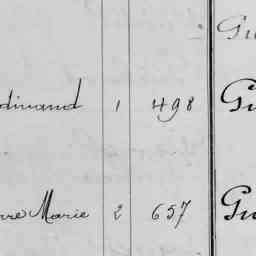 Gu
dinand 1 498 Gu
rre Marie 2 657 Gu